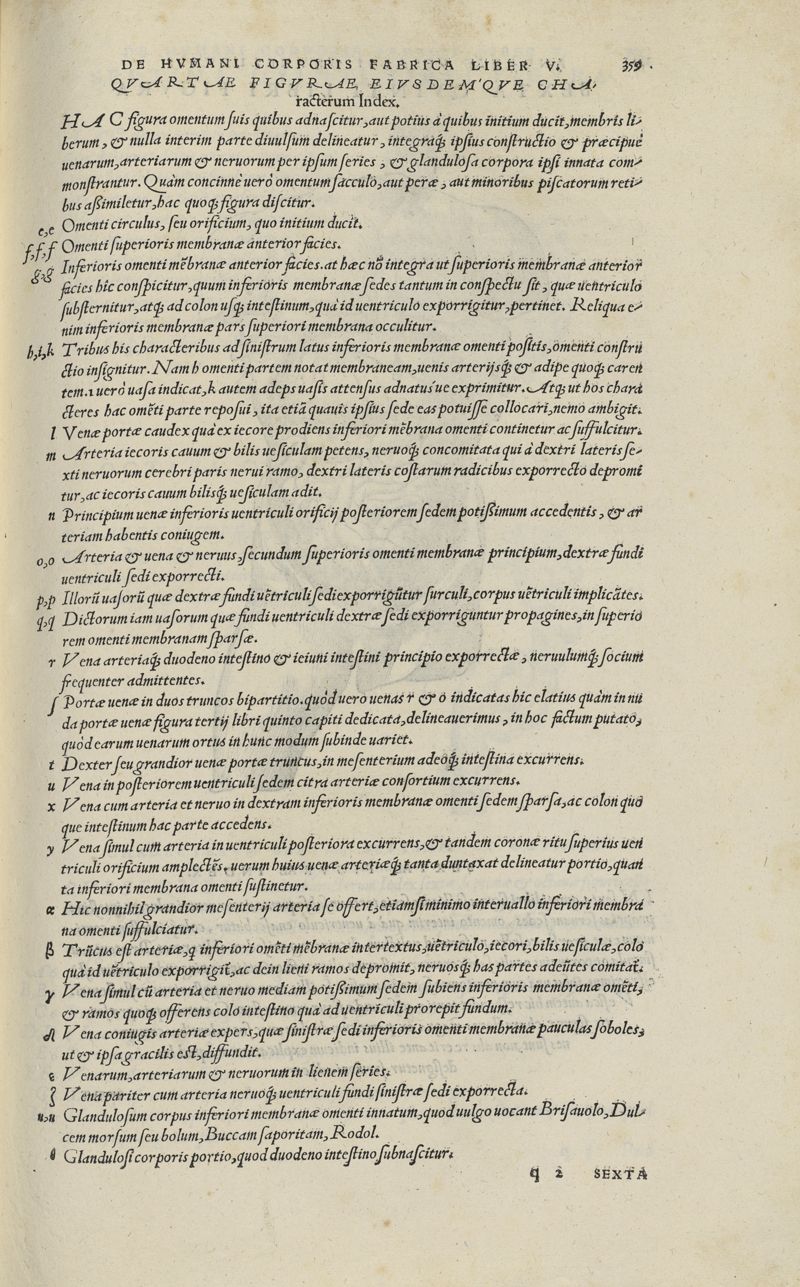 DE HVMANI CORPORIS FABRICA LIBER V. 359.
QVARTAE FIGVRAE, EIVSDEMQ́VE CHA-
racterum Index.
HAC figura omentum suis quibus adnascitur, aut potius à quibus initium ducit, membris li-
berum, & nulla interim parte diuulsum delineatur, integraq́; ipsius constructio & præcipuè
uenarum, arteriarum & neruorum per ipsum series, & glandulosa corpora ipsi innata com-
monstrantur. Quàm concinnè uerò omentum sacculo, aut peræ, aut minoribus piscatorum reti-
bus aßimiletur, hac quoq; figura discitur.
e,e Omenti circulus, seu orificium, quo initium ducit.
f,f,f Omenti superioris membranæ anterior facies.
g,g Inferioris omenti mẽbranæ anterior facies. at hæc nõ integra ut superioris membranæ anterior
facies hîc conspicitur, quum inferioris membranæ sedes tantum in conspectu sit, quæ uentriculo
substernitur, atq; ad colon usq; intestinum, quà id uentriculo exporrigitur, pertinet. Reliqua e-
nim inferioris membranæ pars superiori membrana occulitur.
h,i,k Tribus his characteribus ad sinistrum latus inferioris membranæ omenti positis, omenti constru
ctio insignitur. Nam h omenti partem notat membraneam, uenis arterijsq́; & adipe quoq; caren
tem. i uerò uasa indicat, k autem adeps uasis attensus adnatus'ue exprimitur. Atq; ut hos chara
cteres hac omẽti parte reposui, ita etiã quauis ipsius sede eas potuisse collocari, nemo ambigit.
l Venæ portæ caudex quà ex iecore prodiens inferiori mẽbrana omenti continetur ac suffulcitur.
m Arteria iecoris cauum & bilis uesiculam petens, neruoq́; concomitata qui à dextri lateris se-
xti neruorum cerebri paris nerui ramo, dextri lateris costarum radicibus exporrecto depromi
tur, ac iecoris cauum bilisq́; uesiculam adit.
n Principium uenæ inferioris uentriculi orificij posteriorem sedem potißimum accedentis, & ar
teriam habentis coniugem.
o,o Arteria & uena & neruus, secundum superioris omenti membranæ principium, dextræ fundi
uentriculi sedi exporrecti.
p,p Illorũ uasorũ quæ dextræ fundi uẽtriculi sedi exporrigũtur surculi, corpus uẽtriculi implicãtes.
q,q Dictorum iam uasorum quæ fundi uentriculi dextræ sedi exporriguntur propagines, in superio
rem omenti membranam sparsæ.
r Vena arteriaq́; duodeno intestino & ieiuni intestini principio exporrectæ, neruulumq́; socium
frequenter admittentes.
ſ Portæ uenæ in duos truncos bipartitio. quòd uero uenas r & o indicatas hîc elatius quàm in nu
da portæ uenæ figura tertij libri quinto capiti dedicata, delineauerimus, in hoc factum putato,
quòd earum uenarum ortus in hunc modum subinde uariet.
t Dexter seu grandior uenæ portæ truncus, in mesenterium adeoq́; intestina excurrens.
u Vena in posteriorem uentriculi sedem citra arteriæ consortium excurrens.
x Vena cum arteria et neruo in dextram inferioris membranæ omenti sedem sparsa, ac colon quo
que intestinum hac parte accedens.
y Vena simul cum arteria in uentriculi posteriora excurrens, & tandem coronæ ritu superius uen
triculi orificium amplectẽs. uerum huius uenæ arteriæq́; tanta duntaxat delineatur portio, quan
ta inferiori membrana omenti sustinetur.
α Hîc nonnihil grandior mesenterij arteria se offert, etiamsi minimo interuallo inferiori membra
na omenti suffulciatur.
β Trũcus est arteriæ, q̃ inferiori omẽti mẽbranæ intertextus, uẽtriculo, iecori, bilis uesiculæ, colo
quà id uẽtriculo exporrigit, ac dein lieni ramos depromit, neruosq́; has partes adeũtes comitat.
γ Vena simul cũ arteria et neruo mediam potißimum sedem subiens inferioris membranæ omẽti,
& ramos quoq; offerens colo intestino quà ad uentriculi prorepit fundum.
δ Vena coniugis arteriæ expers, quæ sinistræ sedi inferioris omenti membranæ pauculas soboles,
ut & ipsa gracilis est, diffundit.
ε Venarum, arteriarum & neruorum in lienem series.
ζ Vena pariter cum arteria neruoq́; uentriculi fundi sinistræ sedi exporrecta.
η,η Glandulosum corpus inferiori membranæ omenti innatum, quod uulgo uocant Brisauolo, Dul-
cem morsum seu bolum, Buccam saporitam, Rodol.
θ Glandulosi corporis portio, quod duodeno intestino subnascitur.
q 2 SEXTA